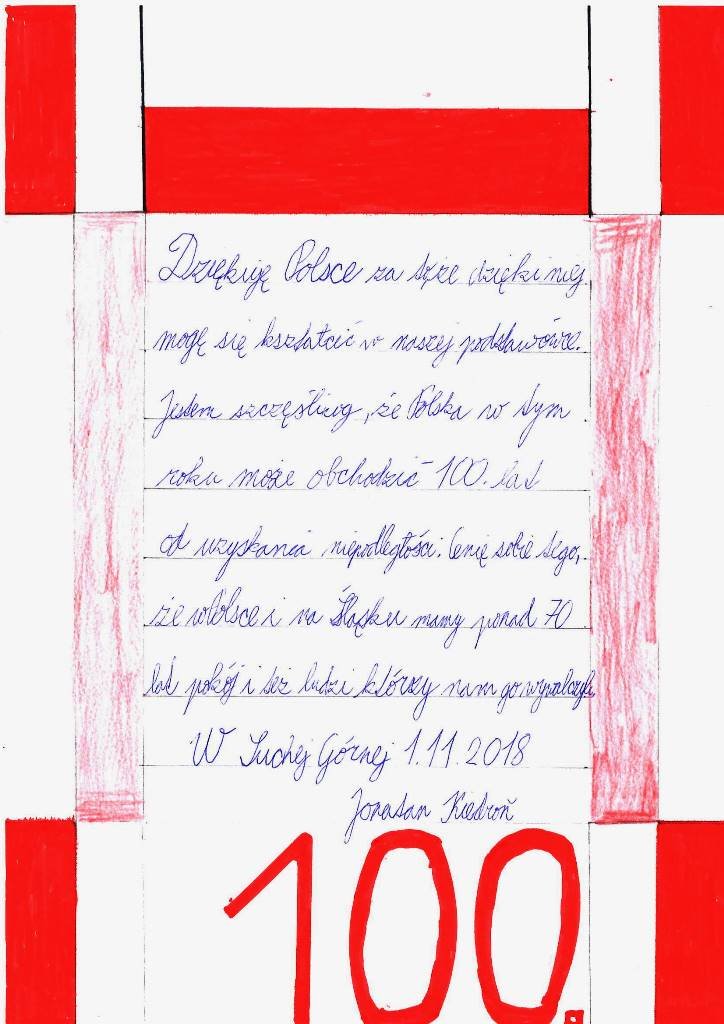 Dziękuję Polsce za to,że dzięki niej
mogę się kształcić w naszej podstawówce.
Jestem szczęśliwy, że Polska w tym
roku może obchodzić 100. lat
od uzyskania niepodległości. Cenię sobie tego,
że w Polsce i na Śląsku mamy ponad 70
lat pokój i też ludzi którzy nam go wywalczyli
W Suchej Górnej 1.11.2018
Jonatan Kiedroň
100.